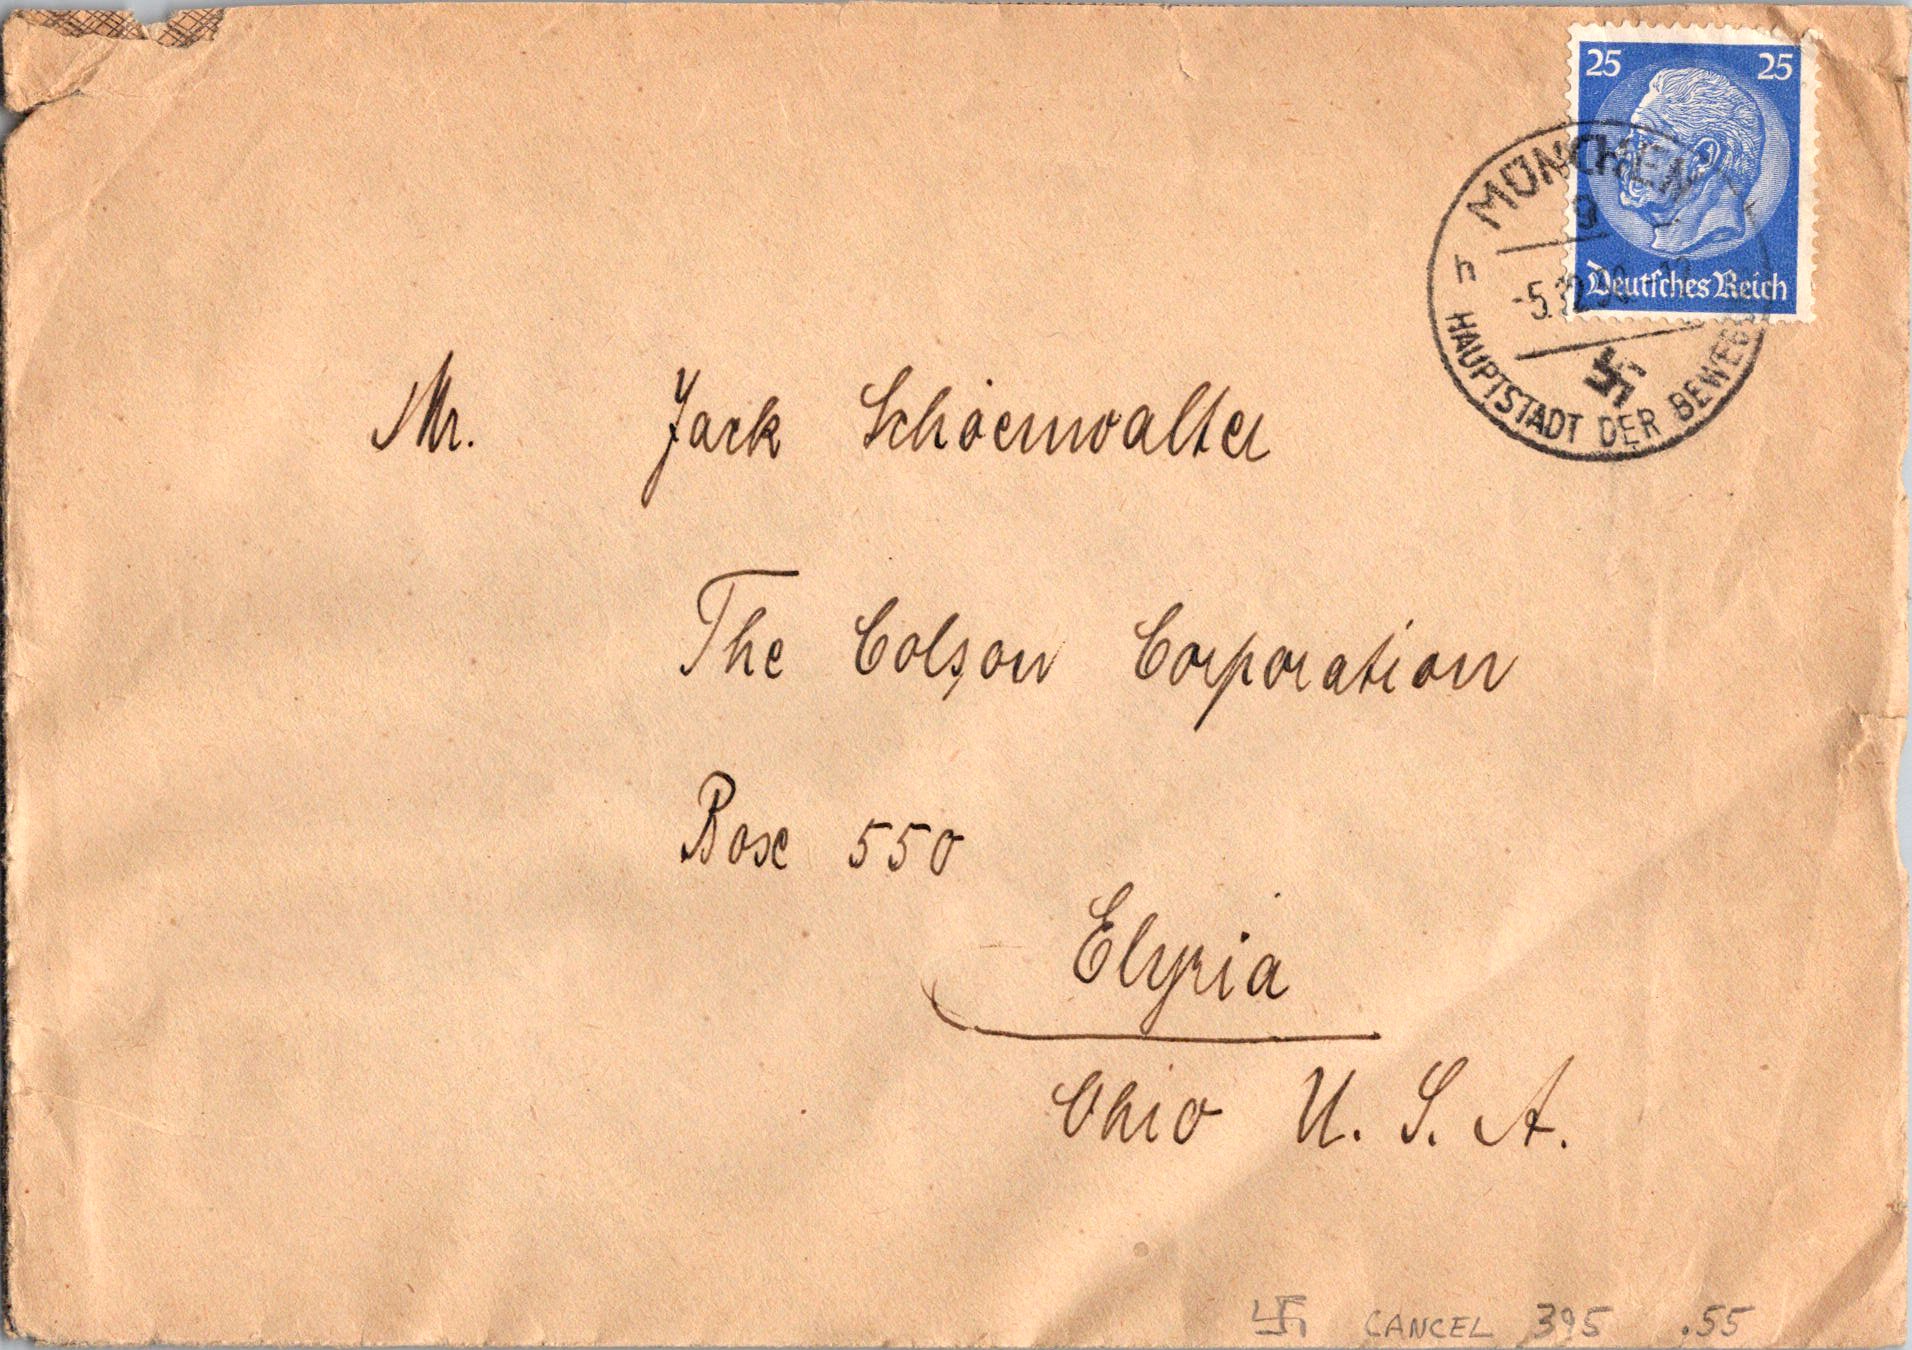 25 25
MÜNCHEN
9
h
-5.12.
Deutsches Reich
HAUPTSTADT DER
Mr. Jack Schoenwalter
The Colson Corporation
Box 550
Elyria
Ohio U. S. A.
卐 CANCEL 395 .55